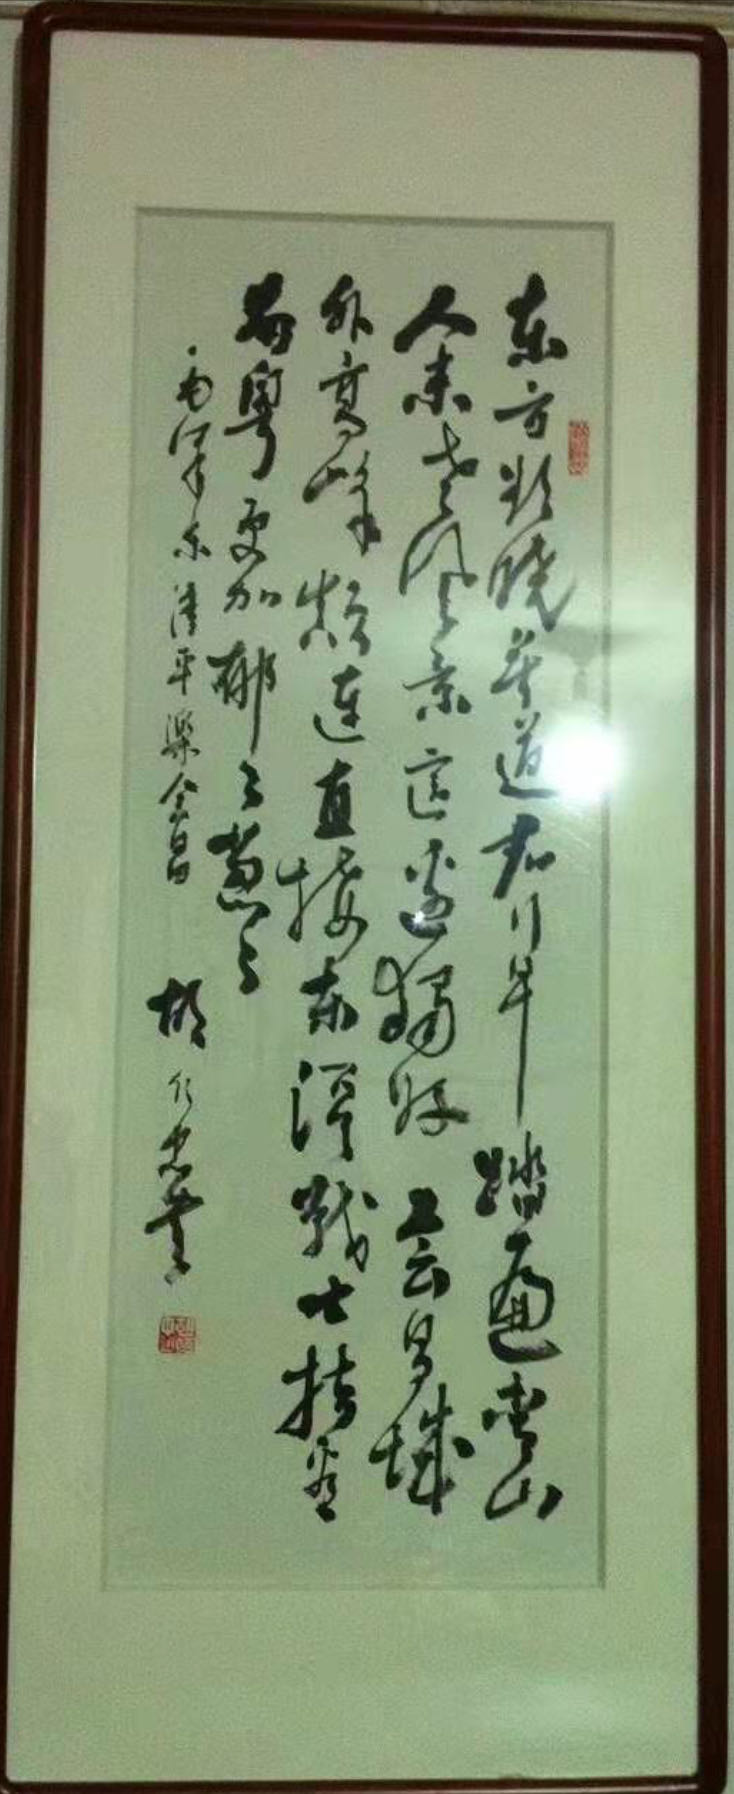 东方欲晓莫道君行早踏遍青山
人未老风景这边独好会昌城
外高峰颠连直接东溟战士指看
南粤更加郁々葱々
毛泽东清平樂会昌 胡仁忠书